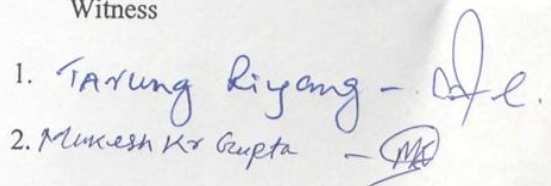 Witness
1. TArung Riyang -
2. Mukesh Kr Gupta - MK